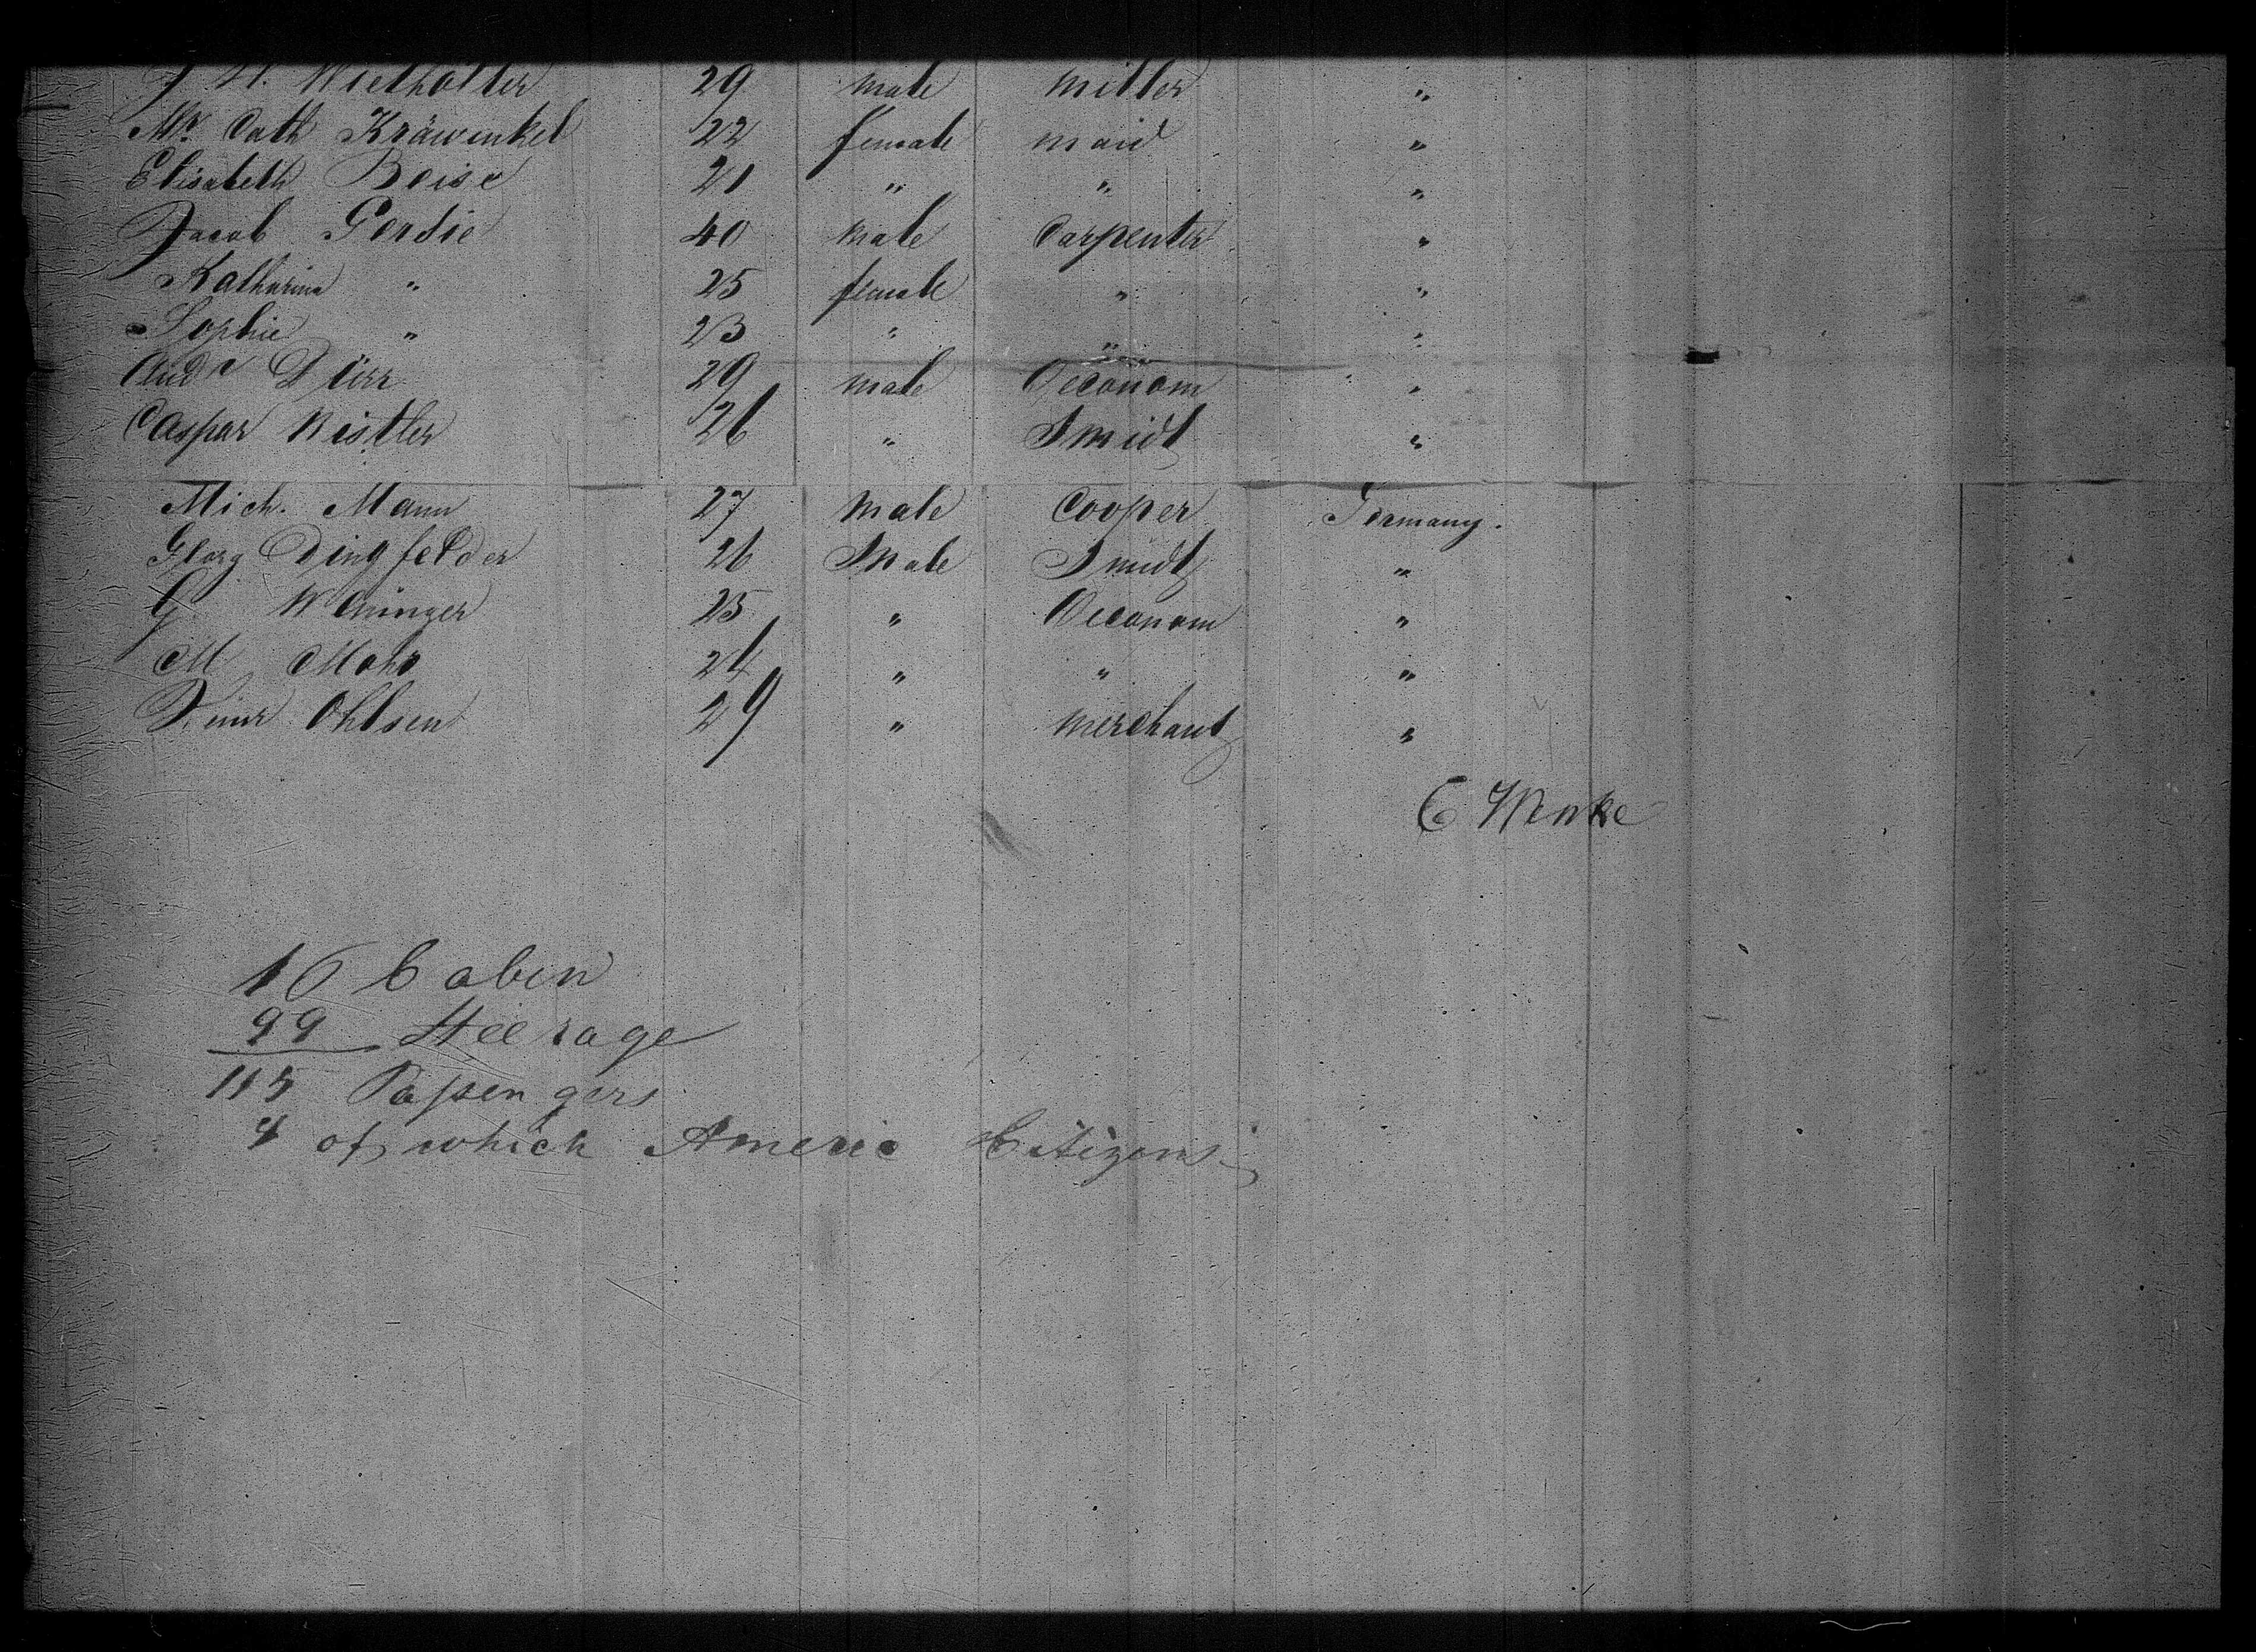 J H. Wiethölter 29 male miller "
Mr. Cath Kräwinkel 22 female maid "
Elisabeth Boise 21 " " "
Jacob Gerdie 40 male Carpenter "
Katharina " 25 female " "
Sophie " 23 " " "
Andr Dürr 29 male Oeconom "
Caspar Nistler 26 " Smidt "
Mich. Mann 27 male Cooper Germany.
Georg Dingfelder 26 Male Smidt "
G Weninger 25 " Oeconom "
M Mohr 24 " " "
Ohlsen 29 " merchant "
C Wenke
16 Cabin
99 Steerage
115 Passengers
4 of which Americ Citizens